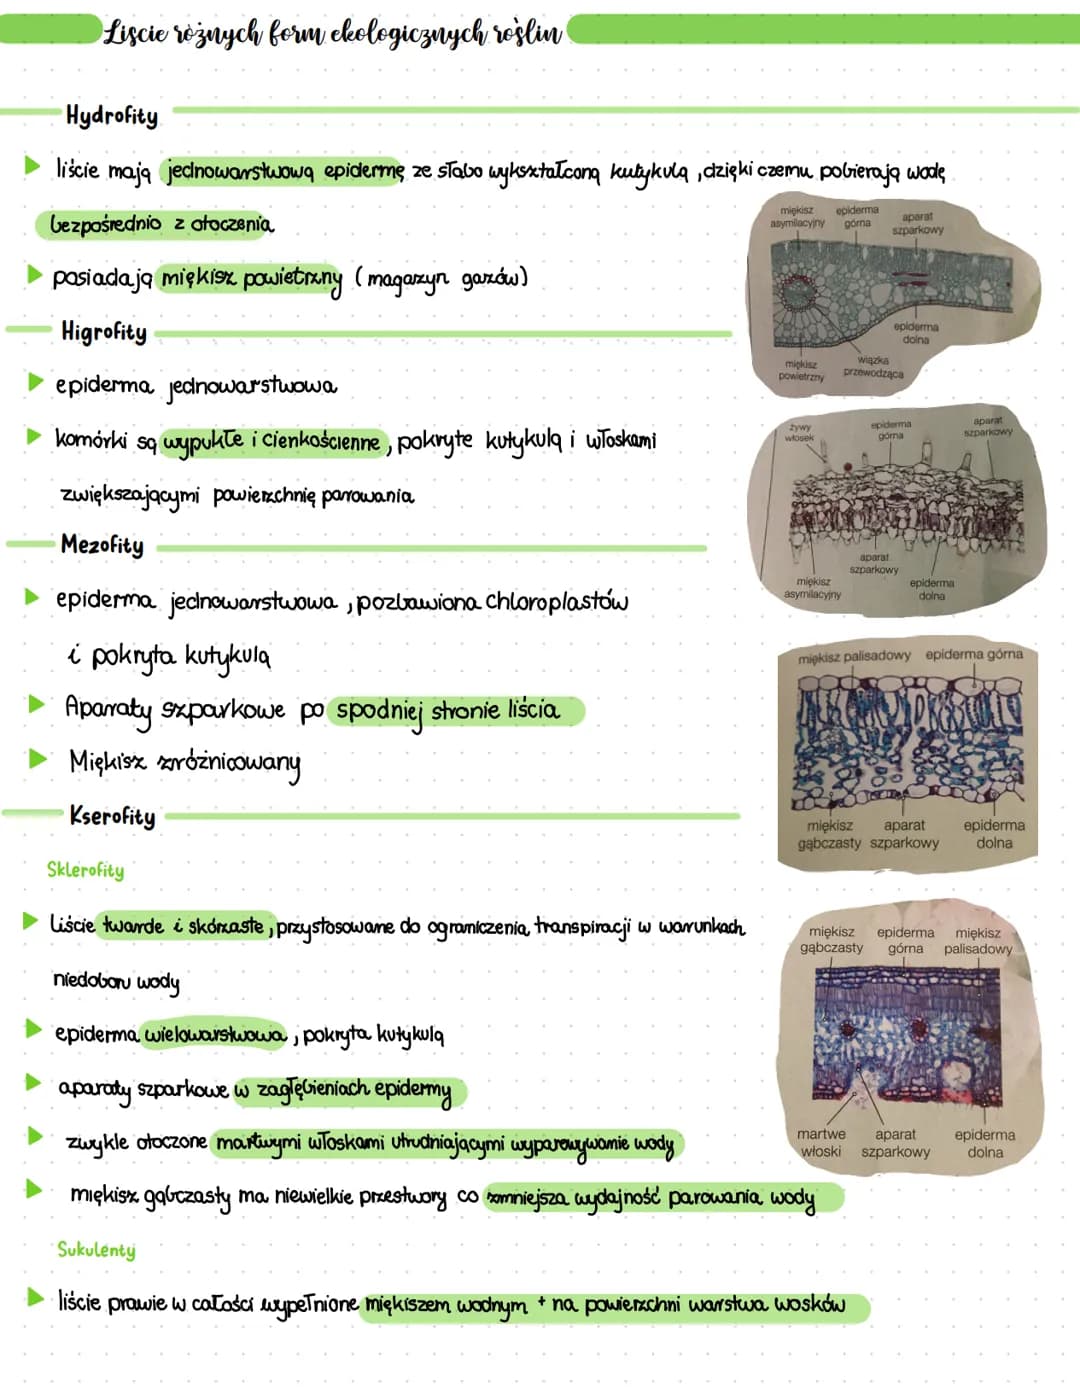 Liście różnych form ekologicznych roślin
Hydrofity
liście mają jednowarstwową epidermę ze słabo wykształconą kutykulą, dzięki czemu pobierają wodę
bezpośrednio z otoczenia
posiadają miękisz powietrzny (magazyn gazów)
miękisz asymilacyjny
epiderma górna
aparat szparkowy
epiderma dolna
miękisz powietrzny
wiązka przewodząca
Higrofity
epiderma jednowarstwowa
komórki są wypukłe i cienkościenne, pokryte kutykulą i włoskami
zwiększającymi powierzchnię parowania
żywy włosek
epiderma górna
aparat szparkowy
aparat szparkowy
miękisz asymilacyjny
epiderma dolna
Mezofity
epiderma jednowarstwowa, pozbawiona chloroplastów
i pokryta kutykulą
Aparaty szparkowe po spodniej stronie liścia
Miękisz zróżnicowany
miękisz palisadowy
epiderma górna
miękisz gąbczasty
aparat szparkowy
epiderma dolna
Kserofity
Sklerofity
Liście twarde i skórzaste, przystosowane do ograniczenia transpiracji w warunkach
niedoboru wody
epiderma wielowarstwowa, pokryta kutykulą
aparaty szparkowe w zagłębieniach epidermy
zwykle otoczone martwymi włoskami utrudniającymi wyparowywanie wody
miękisz gąbczasty ma niewielkie przestwory co zmniejsza wydajność parowania wody
miękisz gąbczasty
epiderma górna
miękisz palisadowy
martwe włoski
aparat szparkowy
epiderma dolna
Sukulenty
liście prawie w całości wypełnione miękiszem wodnym + na powierzchni warstwa wosków